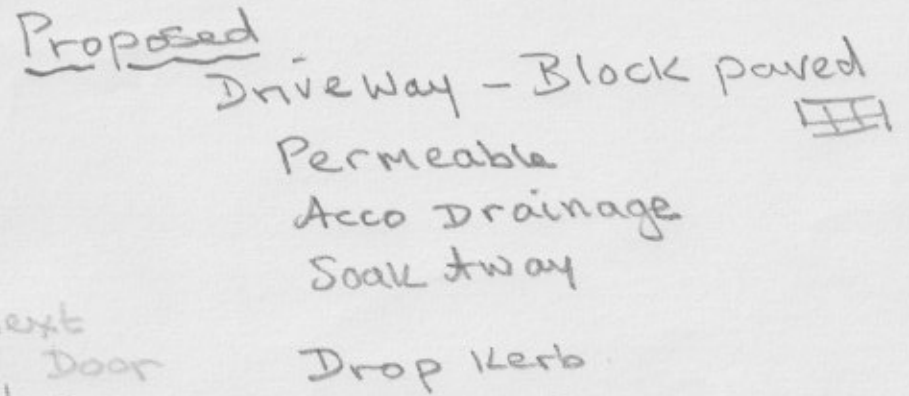 Proposed
Driveway - Block paved
Permeable
Acco Drainage
Soak Away
ext
Door
Drop Kerb